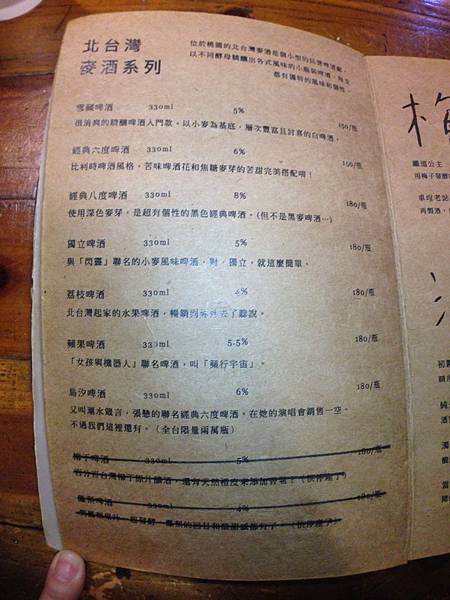 北台灣
麥酒系列
位於桃園的北台灣麥酒是個小型的民營啤酒廠，
以不同酵母精釀出各式風味的小廠製啤酒，每支
都有獨特的風味和個性。
雪藏啤酒 330ml 5% 150/瓶
很清爽的精釀啤酒入門款，以小麥為基底，層次豐富且討喜的白啤酒。
經典六度啤酒 330ml 6% 150/瓶
比利時啤酒風格，苦味啤酒花和焦糖麥芽的苦甜完美搭配唷！
經典八度啤酒 330ml 8% 180/瓶
使用深色麥芽，是超有個性的黑色經典啤酒。(但不是黑麥啤酒…)
獨立啤酒 330ml 5% 180/瓶
與「閃靈」聯名的小麥風味啤酒，對，獨立，就這麼簡單。
荔枝啤酒 330ml 4% 180/瓶
北台灣起家的水果啤酒，暢銷到海外去了聽說。
蘋果啤酒 330ml 5.5% 180/瓶
「女孩與機器人」聯名啤酒，叫「蘋行宇宙」。
島汐啤酒 330ml 6% 180/瓶
又叫潮水箴言，張懸的聯名經典六度啤酒，在她的演唱會銷售一空，
不過我們這裡還有。(全台限量兩萬瓶)
柳丁啤酒 330ml 5% 180/瓶
330ml 4% 180/瓶
梅
鐵道公主
用梅子發酵
車埕老站
再製酒，
初
純
濁